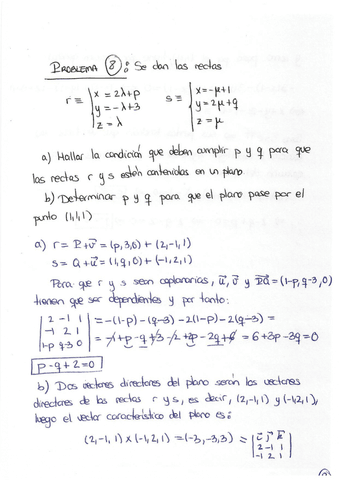 PROBLEMA 8: Se dan las rectas
r ≡ { x = 2λ+p   s ≡ { x = -μ+1
y = -λ+3   y = 2μ+q
z = λ   z = μ
a) Hallar la condición que deben cumplir p y q para que
las rectas r y s estén contenidas en un plano
b) Determinar p y q para que el plano pase por el
punto (1,1,1)
a) r = P+v⃗ = (p,3,0) + (2,-1,1)
s = Q+u⃗ = (1,q,0) + (-1,2,1)
Para que r y s sean coplanarias, u⃗, v⃗ y PQ⃗ = (1-p, q-3, 0)
tienen que ser dependientes y por tanto:
| 2 -1 1 |
| -1 2 1 | = -(1-p) - (q-3) - 2(1-p) - 2(q-3) =
| 1-p q-3 0 | = -1+p-q+3-2+2p-2q+6 = 6+3p-3q = 0
p-q+2=0
b) Dos vectores directores del plano serán los vectores
directores de las rectas r y s, es decir, (2,-1,1) y (-1,2,1),
luego el vector característico del plano es:
(2,-1,1) × (-1,2,1) = (-3,-3,3) = | i⃗ j⃗ k⃗ |
| 2 -1 1 |
| -1 2 1 |